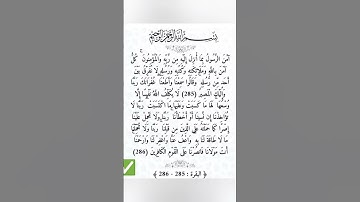 بِسْمِ اللَّهِ الرَّحْمَٰنِ الرَّحِيمِ
آمَنَ الرَّسُولُ بِمَا أُنزِلَ إِلَيْهِ مِن رَّبِّهِ وَالْمُؤْمِنُونَ ۚ كُلٌّ
آمَنَ بِاللَّهِ وَمَلَائِكَتِهِ وَكُتُبِهِ وَرُسُلِهِ لَا نُفَرِّقُ بَيْنَ
أَحَدٍ مِّن رُّسُلِهِ ۚ وَقَالُوا سَمِعْنَا وَأَطَعْنَا ۖ غُفْرَانَكَ رَبَّنَا
وَإِلَيْكَ الْمَصِيرُ (285) لَا يُكَلِّفُ اللَّهُ نَفْسًا إِلَّا
وُسْعَهَا ۚ لَهَا مَا كَسَبَتْ وَعَلَيْهَا مَا اكْتَسَبَتْ ۗ رَبَّنَا لَا
تُؤَاخِذْنَا إِن نَّسِينَا أَوْ أَخْطَأْنَا ۚ رَبَّنَا وَلَا تَحْمِلْ عَلَيْنَا
إِصْرًا كَمَا حَمَلْتَهُ عَلَى الَّذِينَ مِن قَبْلِنَا ۚ رَبَّنَا وَلَا تُحَمِّلْنَا
مَا لَا طَاقَةَ لَنَا بِهِ ۖ وَاعْفُ عَنَّا وَاغْفِرْ لَنَا وَارْحَمْنَا ۚ
أَنتَ مَوْلَانَا فَانصُرْنَا عَلَى الْقَوْمِ الْكَافِرِينَ (286)
﴿ البقرة : 285 - 286 ﴾